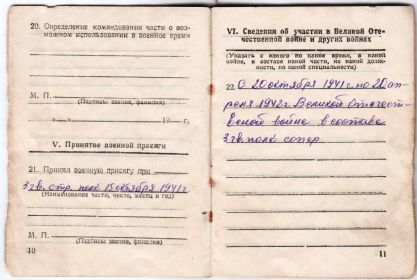 20. Определение командования части о воз-
можном использовании в военное время
М. П.
(Подпись, звание, фамилия)
«—» 19 г.
V. Принятие военной присяги
21. Принял военную присягу при
3 гв. стр. полк 15 октября 1941 г
(Наименование части, число, месяц и год)
М. П.
(Подпись, звание, фамилия)
10
VI. Сведения об участии в Великой Оте-
чественной войне и других войнах
(Указать с какого по какое время, в какой
войне, в составе какой части, на какой долж-
ности, по какой специальности)
22. С 20 октября 1941 г. по 20 ап-
реля 1942 г. Великой Отечест
веной войне в составе
3 гв. полк сапер
11